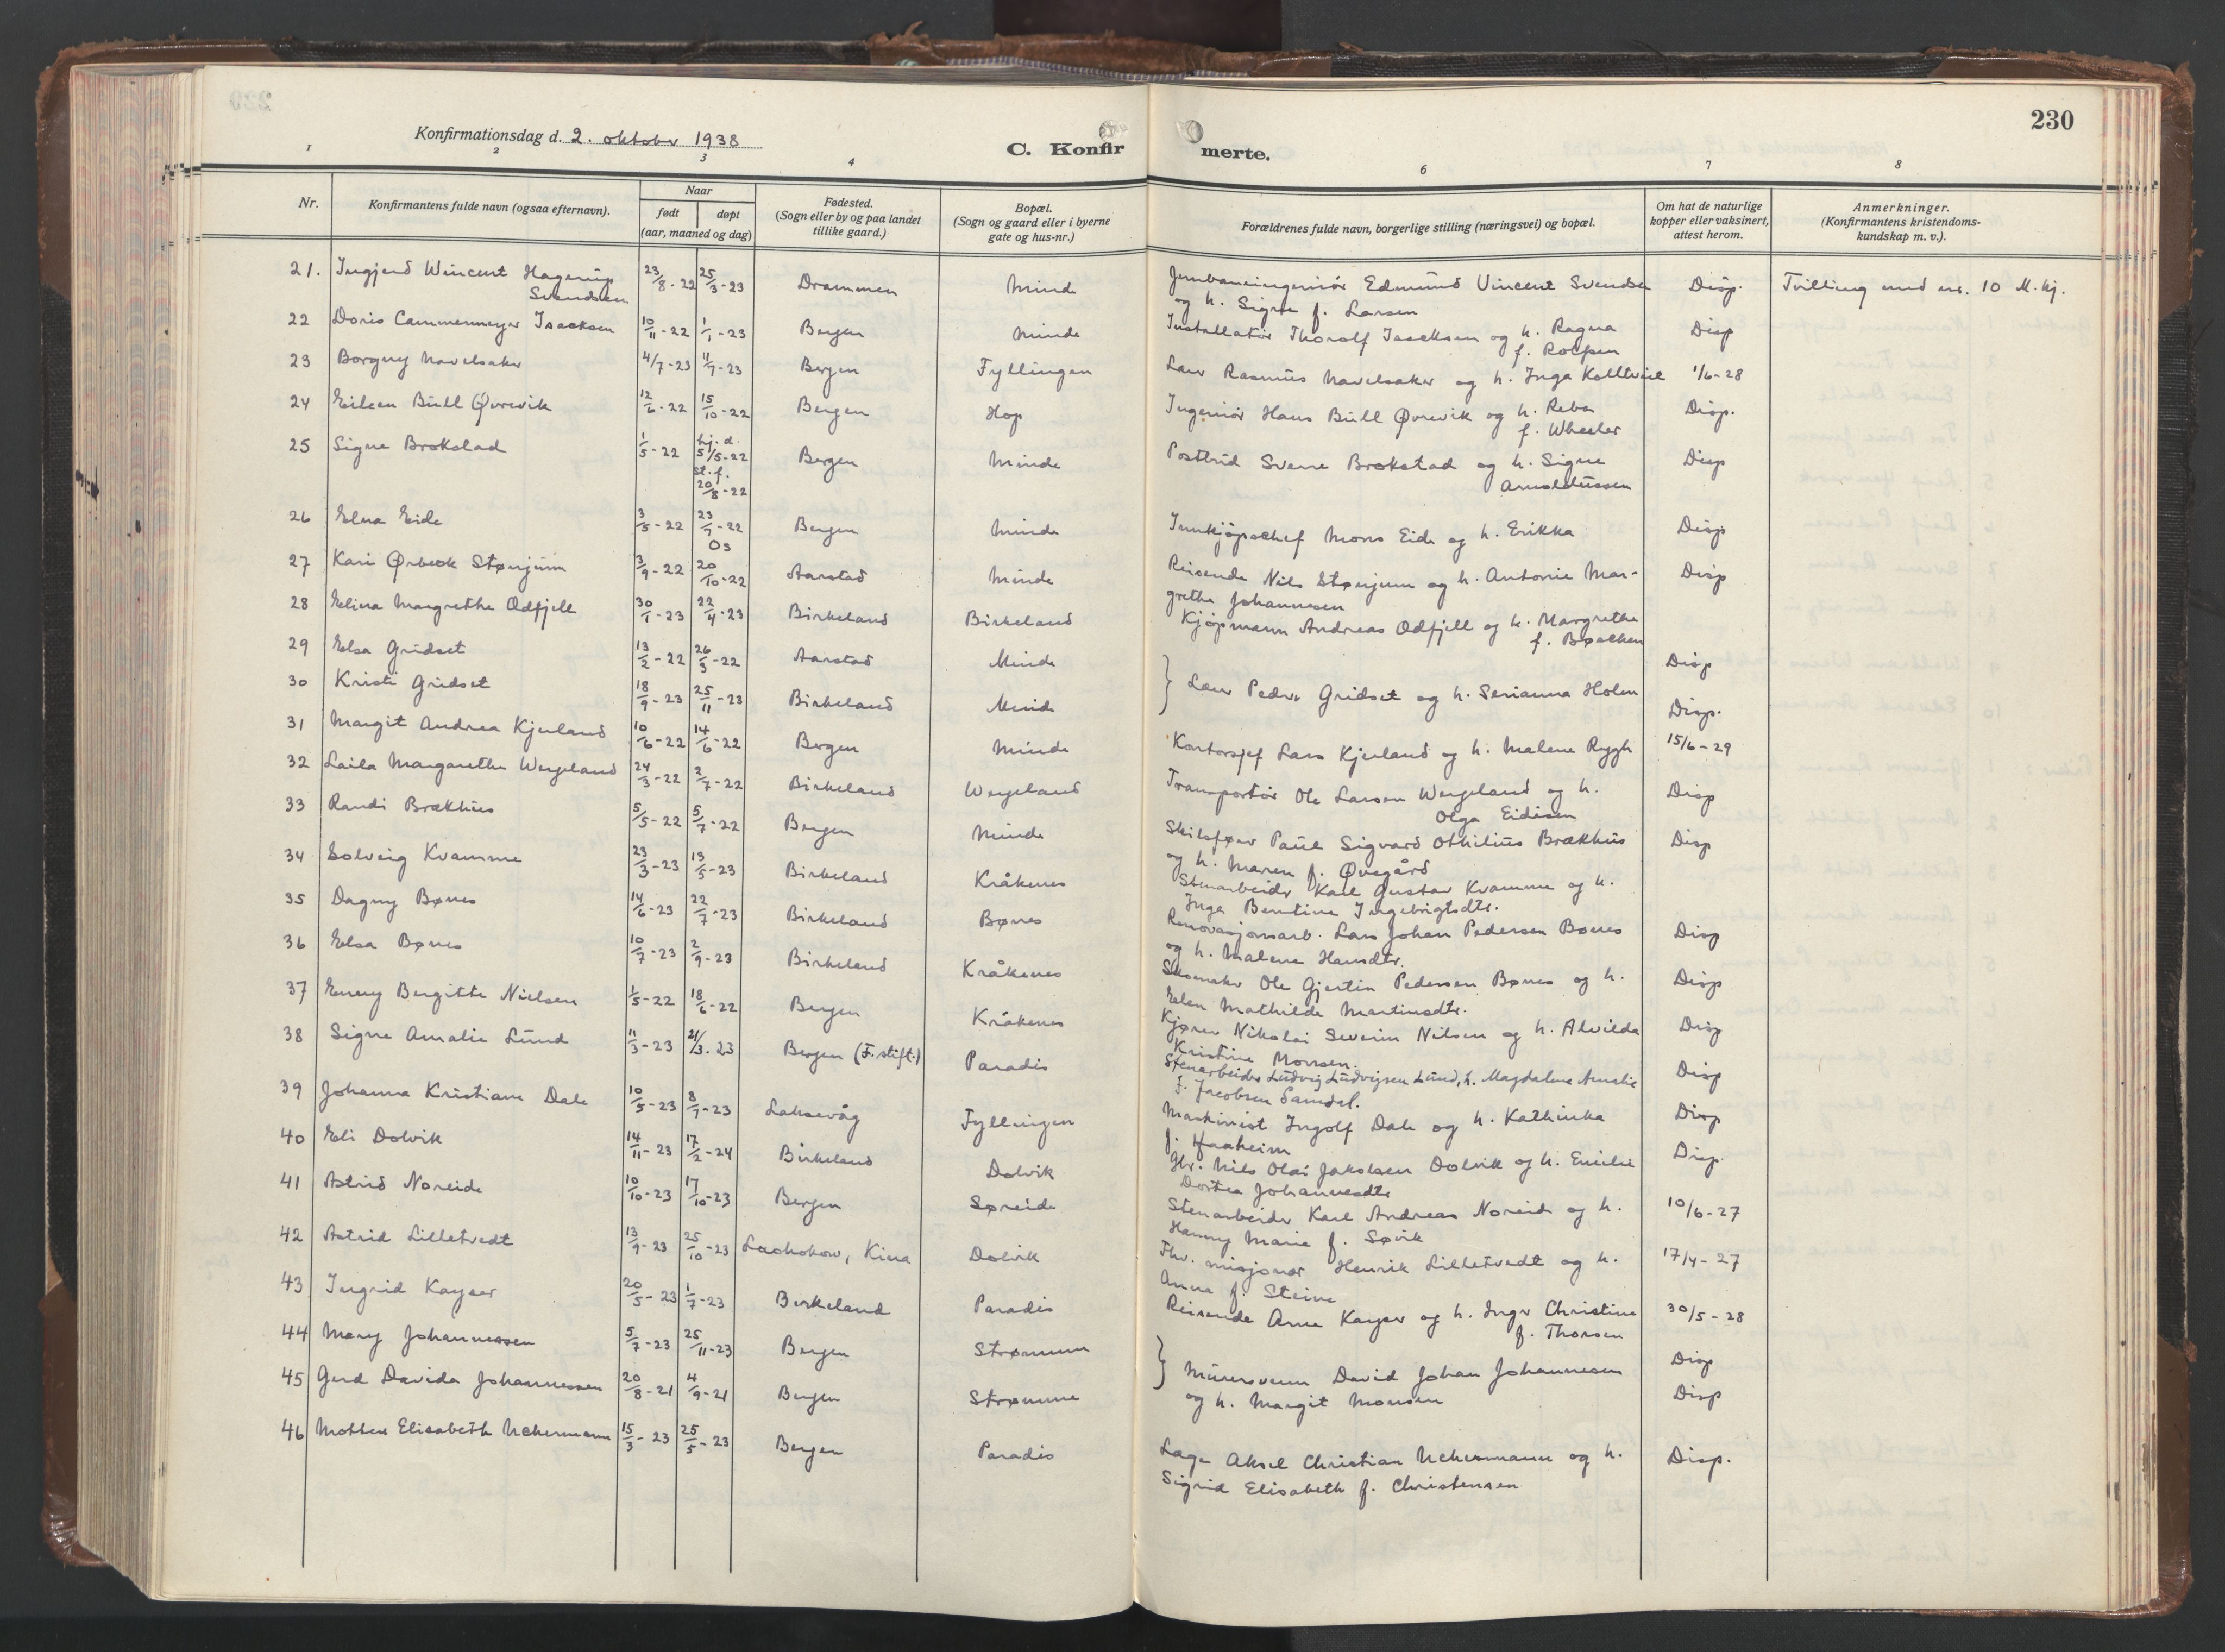 230
Konfirmationsdag d. 2. oktober 1938
C. Konfirmerte.
1 2 3 4 6 7 8
Nr. | Konfirmantens fulde navn (ogsaa efternavn). | Naar født døpt (aar, maaned og dag) | Fødested. (Sogn eller by og paa landet tillike gaard.) | Bopæl. (Sogn og gaard eller i byerne gate og hus-nr.) | Forældrenes fulde navn, borgerlige stilling (næringsvei) og bopæl. | Om hat de naturlige kopper eller vaksinert, attest herom. | Anmerkninger. (Konfirmantens kristendomskundskap m. v.).
21. Ingjerd Wincent Hagerup Svendsen 23/8-22 25/3-23 Drammen Minde Jernbaneingeniør Edmund Vincent Svendsen og h. Signe f. Larsen Disp. Tvilling med nr. 10 M. kj.
22 Doris Cammermeyer Isacksen 10/11-22 1/1-23 Bergen Minde Installatør Thorolf Isacksen og h. Ragna f. Disp
23 Borgny Navelsaker 4/7-23 11/7-23 Bergen Fyllingen Lærer Rasmus Navelsaker og h. Inga Kolltveit 1/6-28
24 Eileen Bull Øvrevik 12/6-22 15/10-22 Bergen Hop Ingeniør Hans Bull Øvrevik og h. Reba f. Wheeler Disp.
25 Signe Brokstad 1/5-22 hj. d. 5/5-22 st. f. 20/8-22 Bergen Minde Postbud Sverre Brokstad og h. Signe Arnoldussen Disp
26 Elna Eide 3/5-22 23/7-22 Os Bergen Minde Innkjøpschef Mons Eide og h. Erikka Disp
27 Kari Ørbeck Stønjum 3/9-22 20/10-22 Aarstad Minde Reisende Nils Stønjum og h. Antonie Margrethe Johannesen Disp
28 Elina Margrethe Odfjell 30/1-23 22/4-23 Birkeland Birkeland Kjøpmann Andreas Odfjell og h. Margrethe f.
29 Elsa Gridset 13/2-22 26/3-22 Aarstad Minde Disp
30 Kristi Gridset 18/9-23 25/11-23 Birkeland Minde } Lærer Peder Gridset og h. Serianna Holen Disp.
31 Margit Andrea Kjerland 10/6-22 14/6-22 Bergen Minde Kontorsjef Lars Kjerland og h. Malene Rygh 15/6-29
32 Laila Margarethe Wergeland 24/3-22 2/7-22 Birkeland Wergeland Transportør Ole Larsen Wergeland og h. Olga Eidisen Disp
33 Randi Brækhus 5/5-22 5/7-22 Bergen Minde Skibsfører Paul Sigvard Othilius Brækhus og h. Maren f. Øvegård Disp
34 Solveig Kvamme 23/3-23 13/5-23 Birkeland Kråkenes Stenarbeider Karl Gustav Kvamme og h. Inga Berntine Ingebrigtsdtr.
35 Dagny Bønes 14/6-23 22/7-23 Birkeland Bønes Renovasjonsarb. Lars Johan Pedersen Bønes og h. Malene Hansdtr. Disp
36 Elsa Bønes 10/7-23 2/9-23 Birkeland Kråkenes Skomaker Ole Gjertin Pedersen Bønes og h. Elen Mathilde Martinsdtr. Disp
37 Enny Bergitte Nielsen 1/5-22 18/6-22 Bergen Kråkenes Kjører Nikolai Severin Nilsen og h. Alvilda Kristine Monsen. Disp
38 Signe Amalie Lund 11/3-23 21/3.23 Bergen (F. stift.) Paradis Stenarbeider Ludvig Ludvigsen Lund, h. Magdalene Amalie f. Jacobsen Samdal. Disp
39 Johanna Kristiane Dale 10/5-23 8/7-23 Laksevåg Fyllingen Maskinist Ingolf Dale og h. Kathinka f. Haaheim Disp
40 Eli Dolvik 14/11-23 17/2-24 Birkeland Dolvik Nils Olai Jakobsen Dolvik og h. Emilie Dortea Johannesdtr Disp.
41 Astrid Noreide 10/10-23 17/10-23 Bergen Søreide Stenarbeider Karl Andreas Noreide og h. Hanny Marie f. Søvik 10/6-27
42 Astrid Lilletvedt 13/9-23 25/10-23 Laohokow, Kina Dolvik Fhv. misjonær Henrik Lilletvedt og h. Anna f. Steine 17/4-27
43 Ingrid Kayser 20/5-23 1/7-23 Birkeland Paradis Reisende Arne Kayser og h. Inger Christine f. Thorsen 30/5-28
44 Mary Johannessen 5/7-23 25/11-23 Bergen Strømme Disp
45 Gerd Davida Johannessen 20/8-21 4/9-21 Bergen Strømme } Murersvenn David Johan Johannesen og h. Margit Monsen Disp
46 Mobben Elisabeth Uchermann 15/3-23 25/5-23 Bergen Paradis Læge Aksel Christian Uchermann og h. Sigrid Elisabeth f. Christensen Disp.